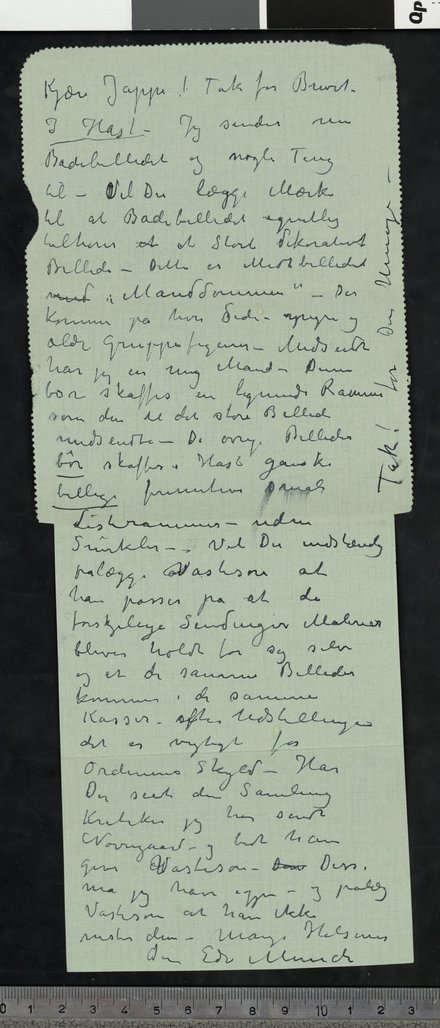 Kjære Jappe! Tak for Brevet.
I Hast – Jeg sender nu
Badebilledet og nogle Ting
til – Vil Du lægge Mærke
til at Badebilledet egentlig
tilhører et et stort dekorativt
Billede – Dette er Midtbilledet
med "Manddommen" – Der
kommer på hver Side – yngre og
ældre Gruppe figurer – Midserst
har jeg en ung Mand – Denne
bør skaffes en lignende Ramme
som den til det store Billed
indsendte – De øvrige Billeder
bør skaffes i Hast ganske
billige primitive smale
Listerammer – uden
Snirkler – Vil Du indstændig
pålægge Vastesson at
han passer på at de
forskjellige Sendinger Malerier
bliver holdt for seg selv
og at de samme Billeder
kommer i de samme
Kasser – efter Udstillingen
det er vigtigt for
Ordenens Skyld – Har
Du seet den Samling
Kritiker jeg har sendt
Nørregaard – og bedt ham
give Vastesson – Diss.
må jeg have igjen – og pålæg
Vastesson at han ikke
mister den – Mange Hilsener
Din Edv Munch
Tak! for Din Umage –
0 1 2 3 4 5 6 7 8 9 10 1 2 3